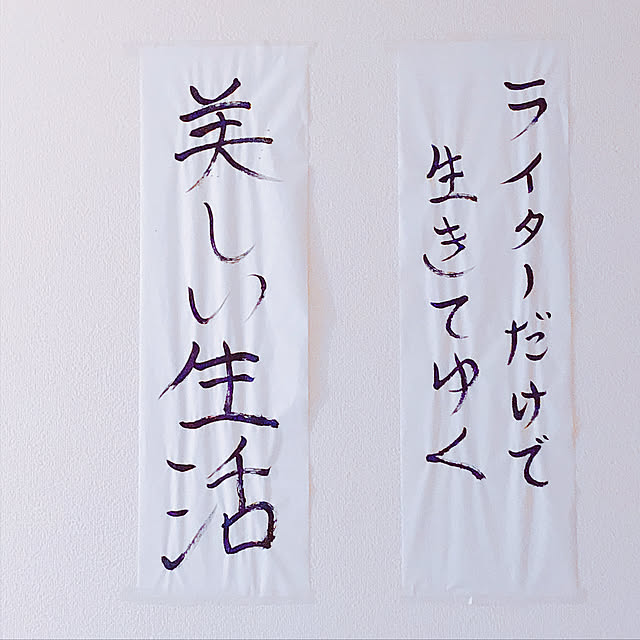 ライターだけで
生きてゆく
美しい生活